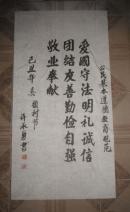 公民基本道德教育规范
爱國守法明礼诚信
团结友善勤俭自强
敬业奉献
己丑年
书